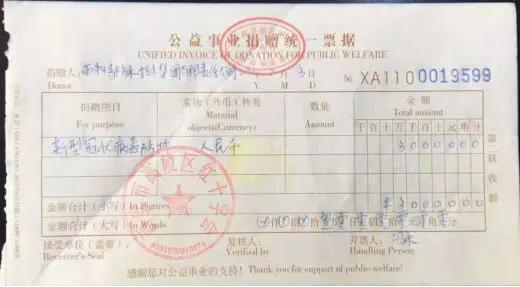 公益事业捐赠统一票据
UNIFIED INVOICE OF DONATION FOR PUBLIC WELFARE
捐赠人: 月3日
Donor № XA110 0019599
捐赠项目 实物(外币)种类 数量 金额
For purpose Material objects(Currency) Amount Total amount
千百十万千百十元角分
新型冠状病毒防控 人民币 3000000
金额合计(小写)In Figures ¥3000000
金额合计(大写)In Words 仟 佰 拾 叁 万 零 仟 零 佰 零 拾 零 元 零 角 零 分
接受单位(盖章): 复核人: 开票人:
Receiver's Seal Verified by Handling Person
感谢您对公益事业的支持! Thank you for support of public welfare!
第二联 收据
市高陵区红十字会